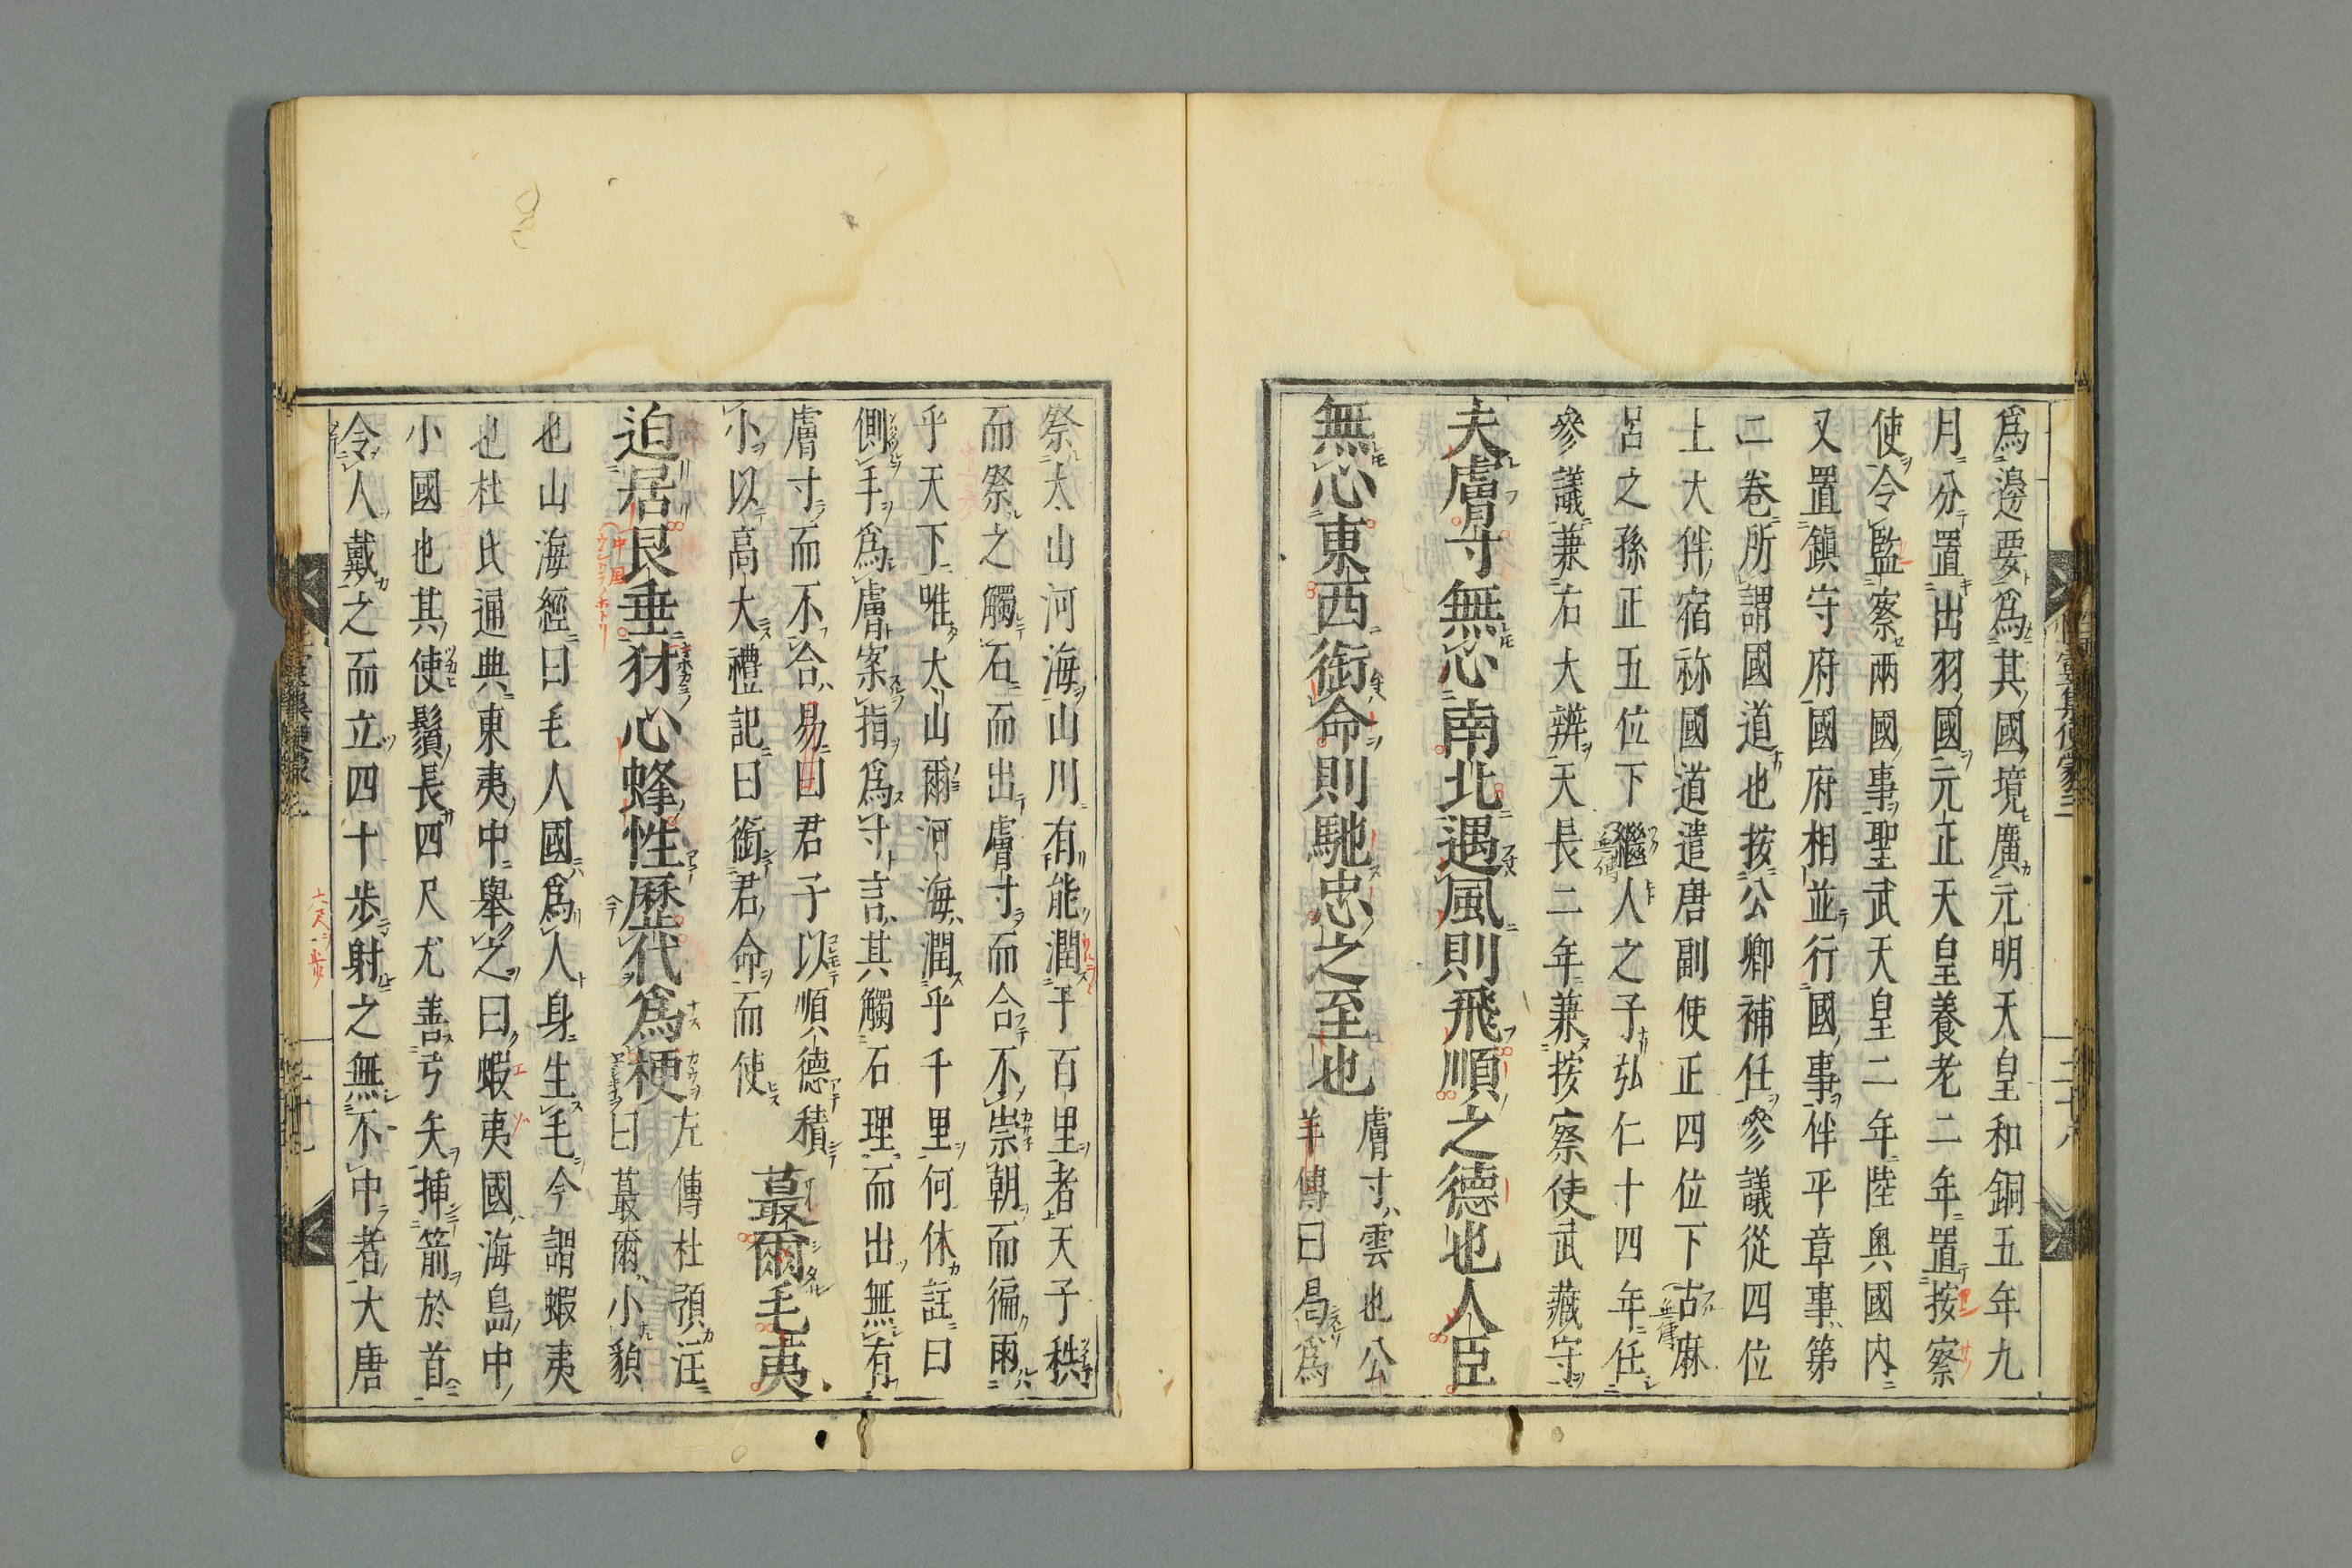 爲邊要爲其國境廣元明天皇和銅五年九
月分置出羽國元正天皇養老二年置按察
使令監察兩國事聖武天皇二年陸奥國内
又置鎭守府國府相並行國事伴平章事第
二卷所謂國道也按公卿補任參議從四位
上大伴宿祢國道遣唐副使正四位下古麻
呂之孫正五位下繼人之子弘仁十四年任
參議兼右大辨天長二年兼按察使武藏守
夫膚寸無心南北遇風則飛順之德也人臣
無心東西銜命則馳忠之至也
膚寸雲也公
羊傳曰曷爲
祭太山河海山川有能潤于百里者天子秩
而祭之觸石而出膚寸而合不崇朝而徧雨
乎天下唯太山爾河海潤乎千里何休註曰
側手爲膚案指爲寸言其觸石理而出無有
膚寸而不合易曰君子以順德積
小以高大禮記曰銜君命而使
蕞爾毛夷
迫居艮垂犲心蜂性歷代爲梗
左傳杜預注
曰蕞爾小貌
也山海經曰毛人國爲人身生毛今謂蝦夷
也杜氏通典東夷中舉之曰蝦夷國海島中
小國也其使鬚長四尺尤善弓矢挿箭於首
令人戴之而立四十歩射之無不中者大唐